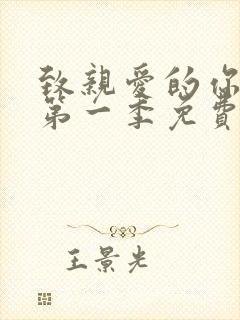 致親愛的你
第一季免費
王景光